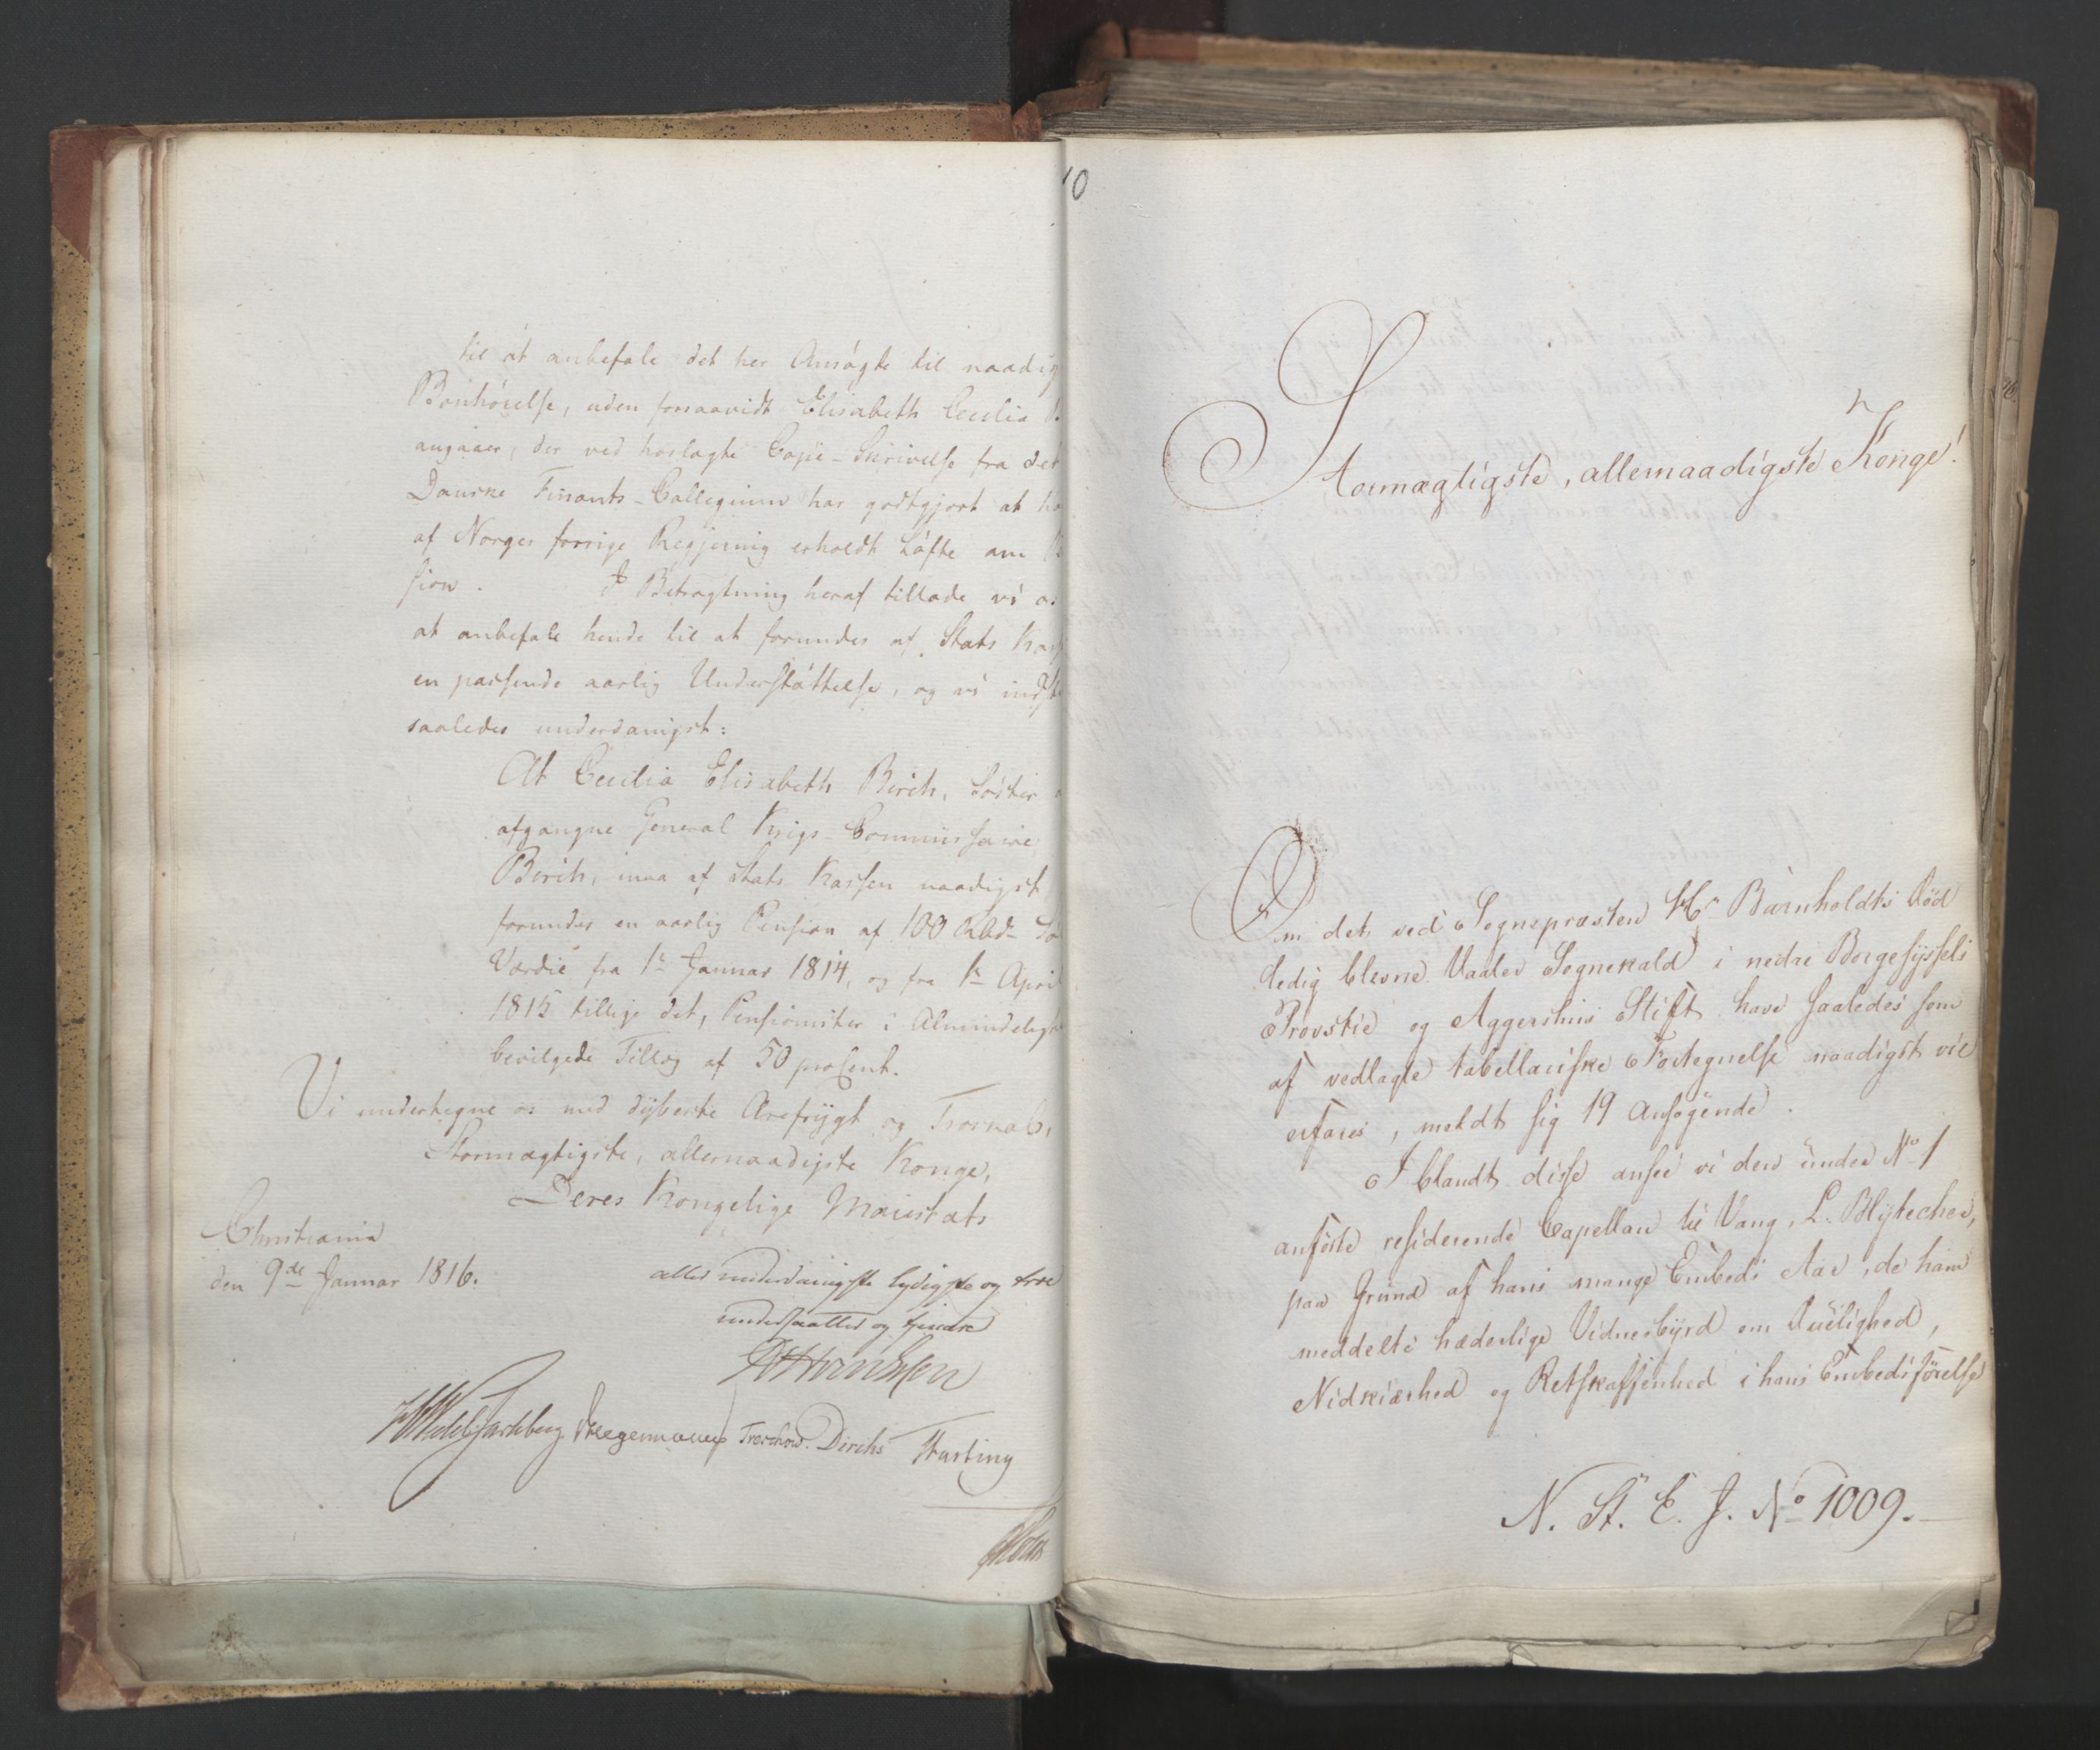 til at anbefale det her Ansøgte til naadig
Bønhørelse, uden forsaavidt Elisabeth Cecilia B
angaaer, der ved hoslagte Copie-Skrivelse fra det
Danske Finants-Collegium har godtgjort at ha
af Norges forrige Regjering erholdt Løfte om P
sion. I Betragtning heraf tillade vi o
at anbefale hende til at forundes af Stats Kass
en passende aarlig Understøttelse, og vi indst
saaledes underdanigst:
At Cecilia Elisabeth Birch, Søster
afgangne General Krigs-Commissaire
Birch, maa af Stats Kassen naadigst
forundes en aarlig Pension af 100 Rbd.
Værdie fra 1ste Januar 1814, og fra 1ste April
1815 tillige det, Pensionister i Almindelighe
bevilgede Tillæg af 50 proCent.
Vi undertegne os med dybeste Ærefrygt og Troskab,
Stormægtigste, allernaadigste Konge,
Deres Kongelige Maiestæts
Christiania
den 9de Januar 1816.
allerunderdanigste lydigste og troe
undersaatter og tjenere
MAnsteen
HWedelJarlsberg Kregenmann Treschow. Diriks Hasting
10
Stormægtigste, allernaadigste Konge!
Om det ved Sognepræsten Hr Barnholdts Død
ledig blevne Vaaler Sognekald i nedre Borgesyssels
Provstie og Aggershuus Stift have saaledes som
af vedlagte tabellariske Fortegnelse naadigst vil
erfares, meldt sig 19 Ansøgende.
Iblandt disse ansee vi den under No 1
anførte residerende Capellan til Vang, L. Blytecher,
paa Grund af hans mange Embeds Aar, de ham
meddelte hæderlige Vidnesbyrd om Duelighed,
Nidkiærhed og Retskaffenhed i hans Embedsførelse
N. St. E. J. No 1009.